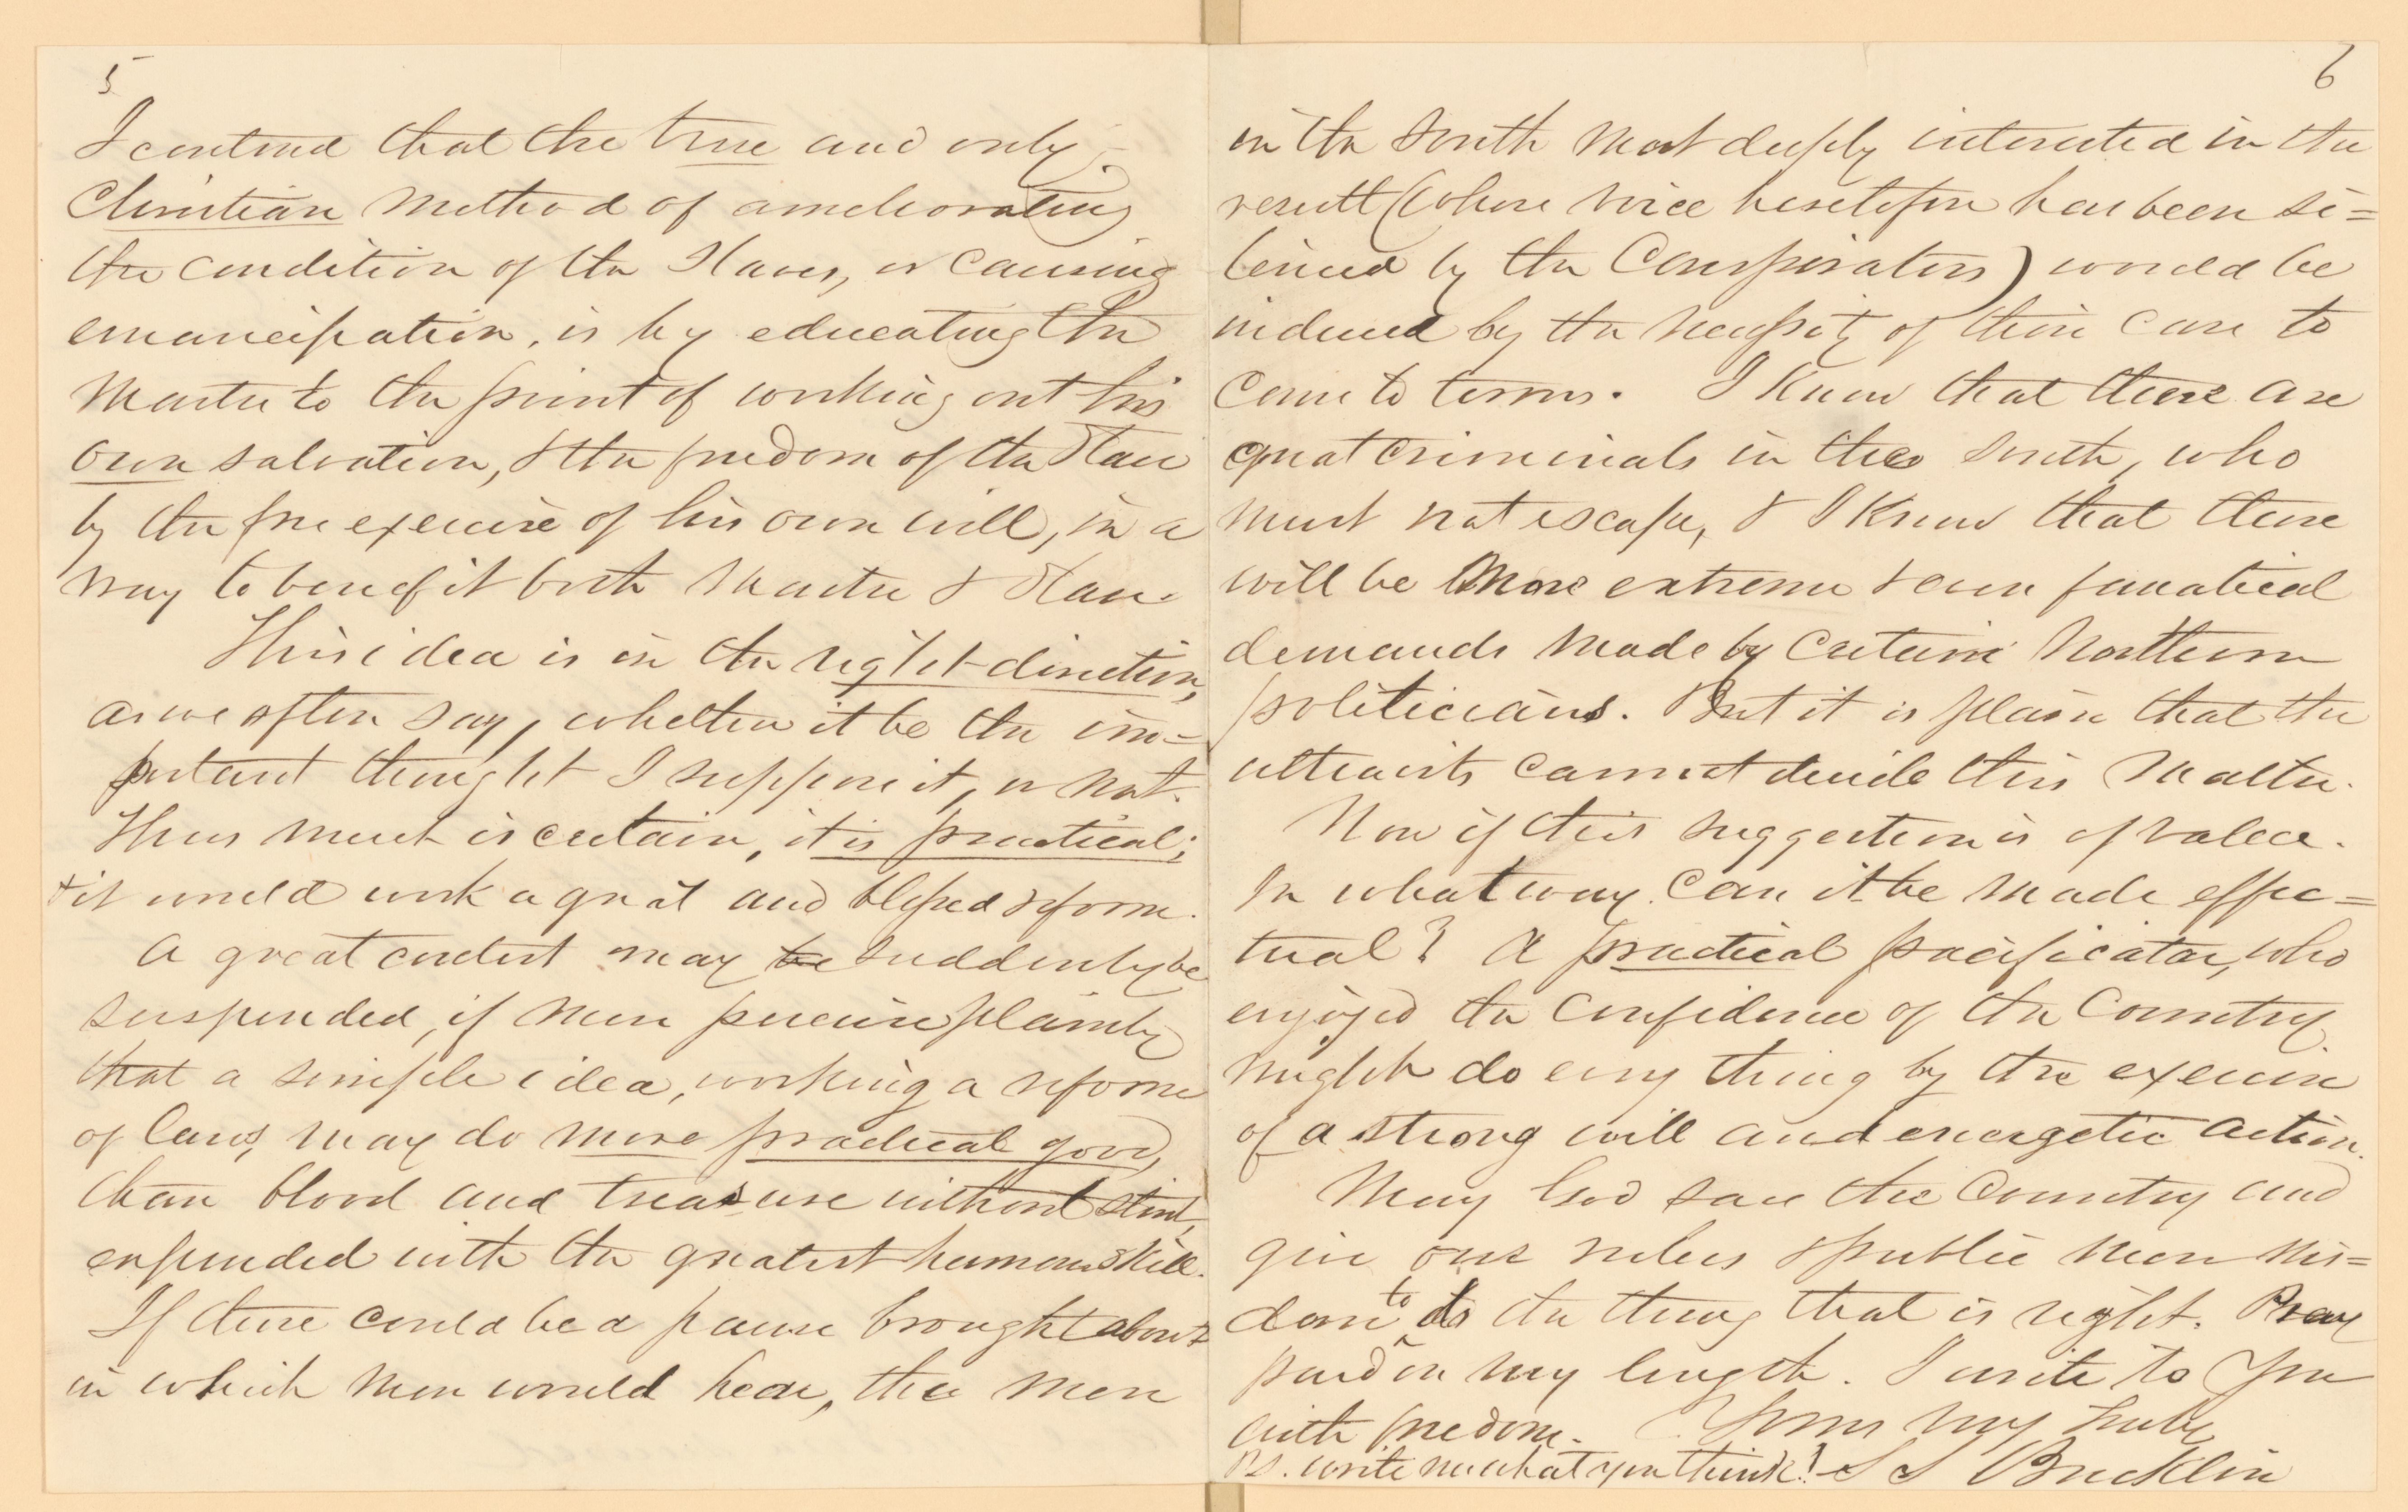 5
I contend that the true and only
Christian method of ameliorating
the condition of the Slaves, or causing
emancipation, is by educating the
Master to the point of working out his
own salvation, & the freedom of the Slave
by the free exercise of his own will, in a
way to benefit both Master & Slave.
This idea is in the right direction,
as we often say, whether it be the im=
portant thought I suppose it, or not.
Thus much is certain, it is practical;
& it would work a great and blessed reform.
A great contest may be suddenly be
suspended, if men perceive plainly
that a simple idea, working a reform
of laws, may do more practical good,
than blood and treasure without stint,
expended with the greatest human skill.
If there could be a pause brought about
in which men would hear, the men
6
in the South most deeply interested in the
result (whose voice heretofore has been si=
lenced by the Conspirators) would be
induced by the necessity of their case to
come to terms. I know that there are
great criminals in the South, who
must not escape, & I know that there
will be more extreme & even fanatical
demands made by certain Northern
politicians. But it is plain that the
ultraists cannot decide this matter.
Now if this suggestion is of value.
In what way can it be made effec=
tual? A practical pacificator, who
enjoyed the confidence of the Country,
might do every thing by the exercise
of a strong will and energetic action.
May God save the Country and
give our rulers & public men wis=
dom to do the thing that is right. Pray
pardon my length. I write to you
with freedom. Yours very truly
P.S. write me what you think! S S Bucklin